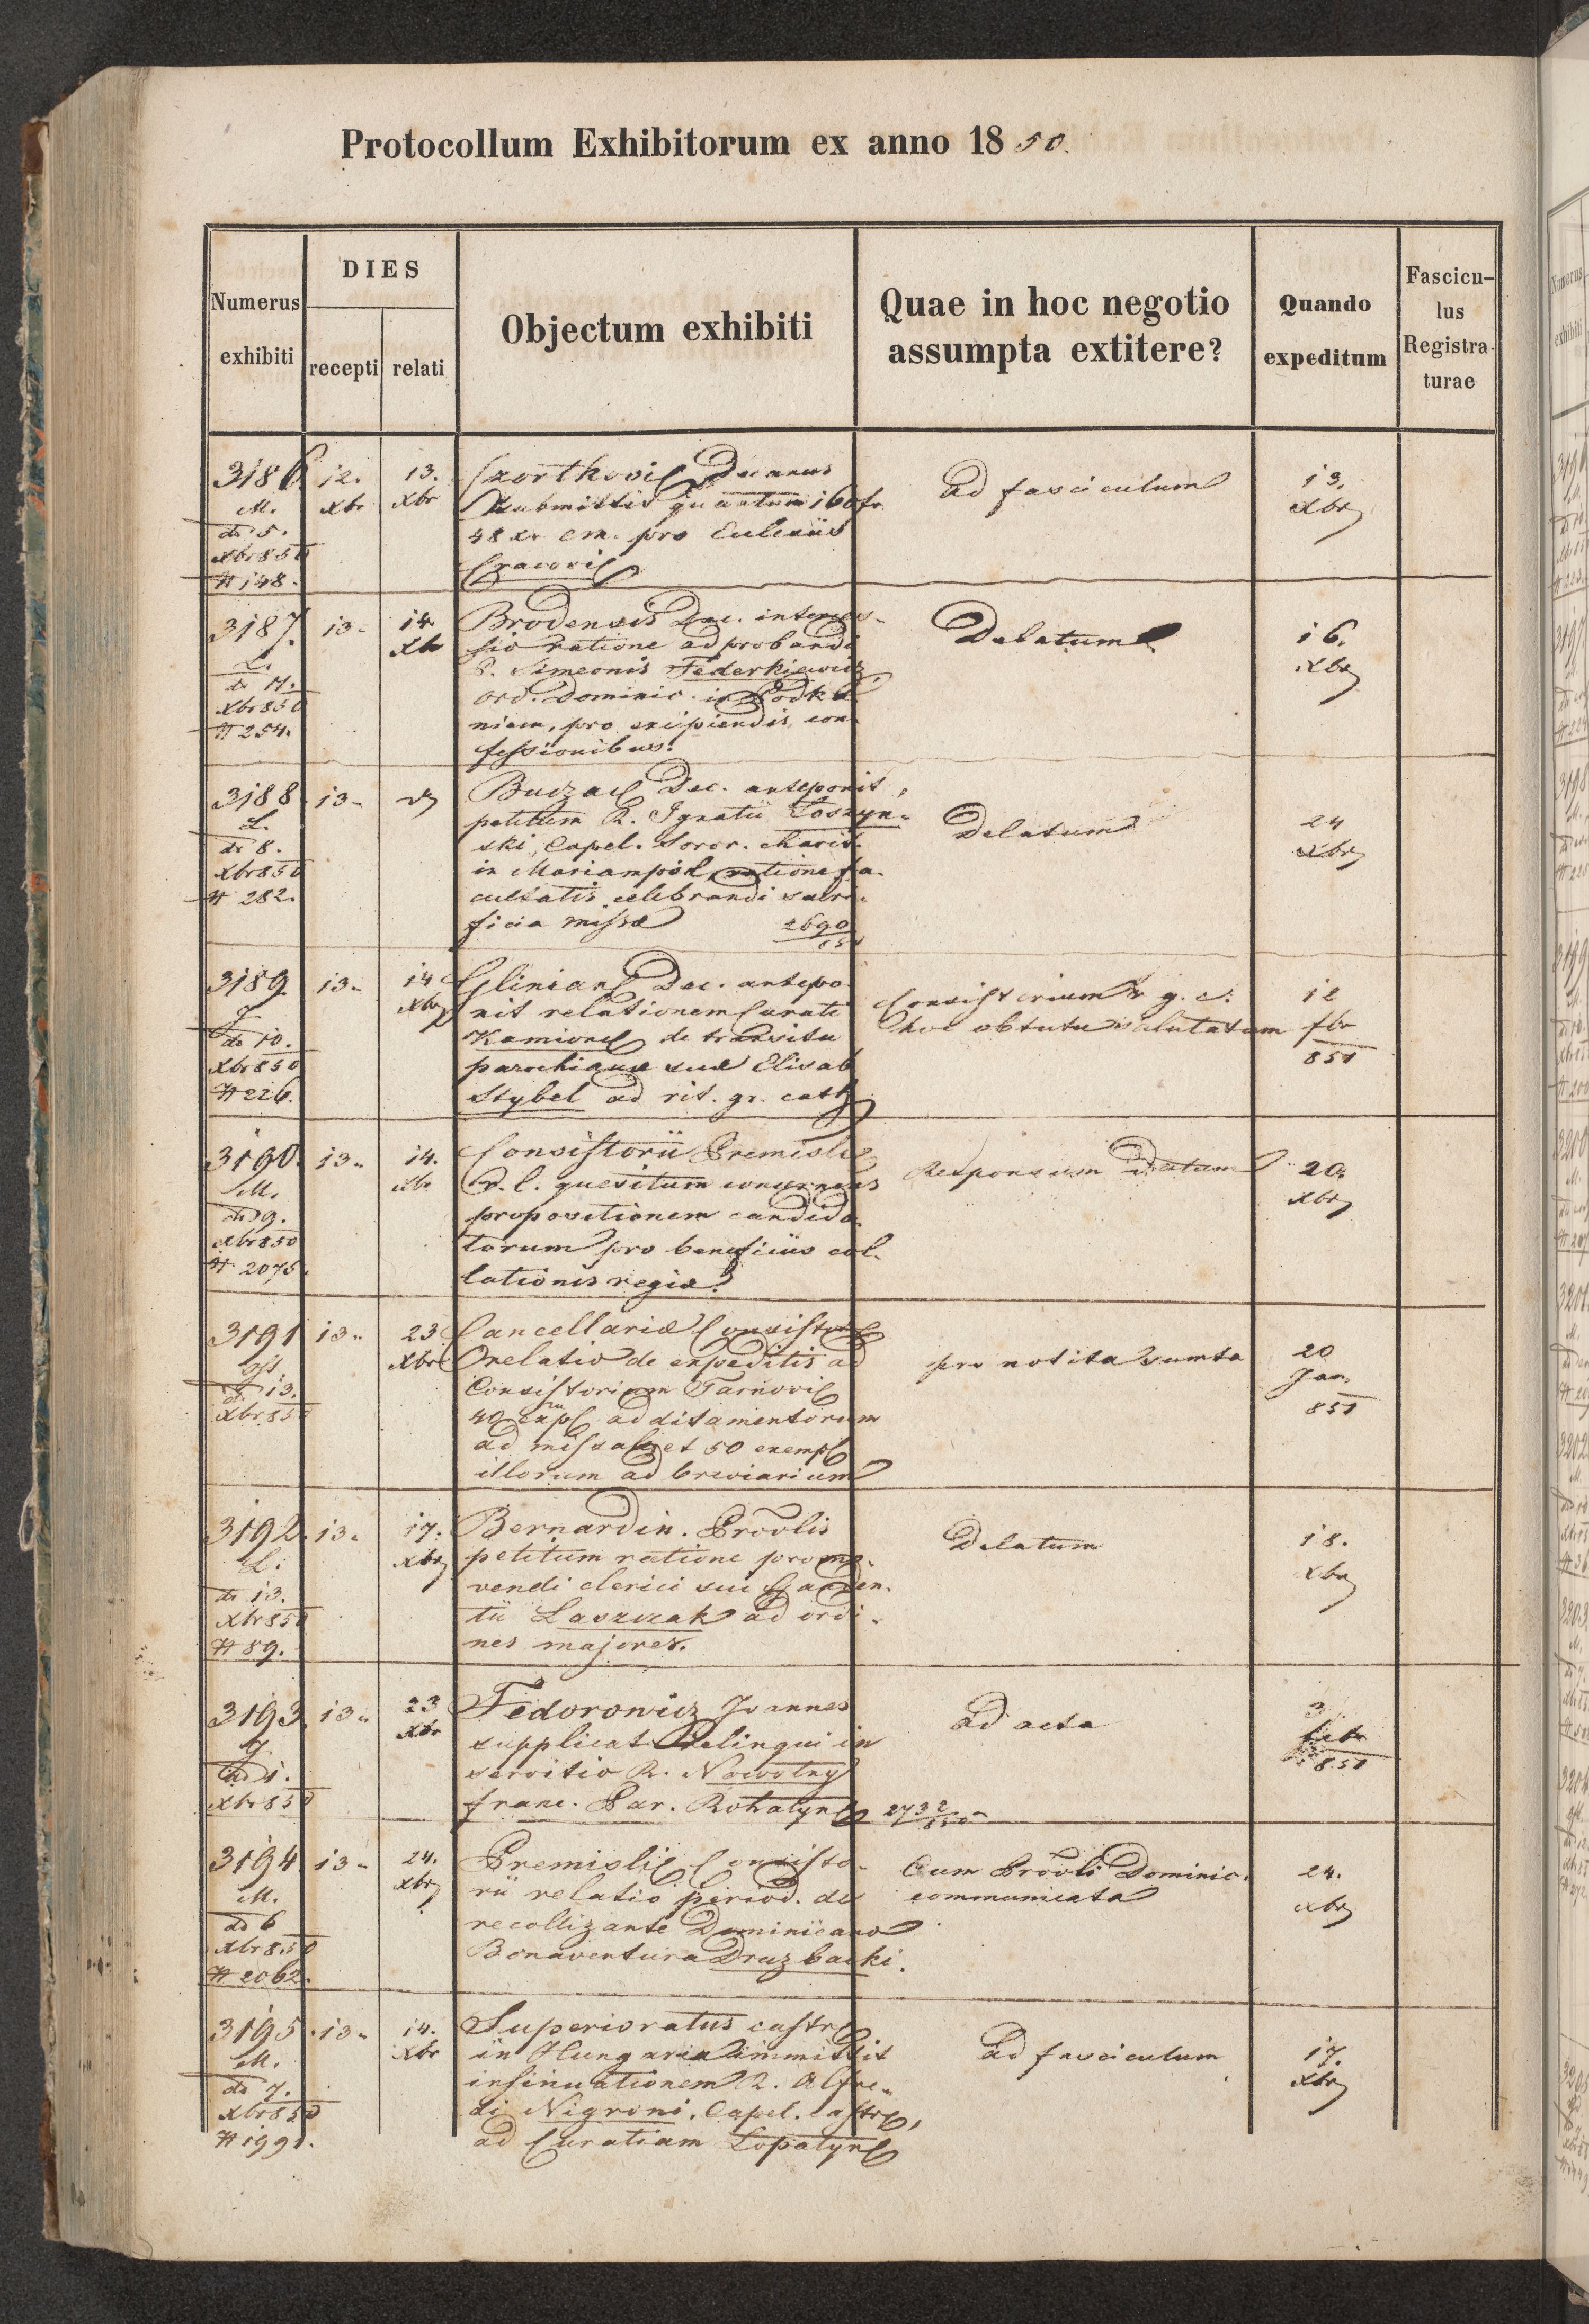 Protocollum Exhibitorum ex anno 1850.
Numerus exhibiti
DIES
recepti
relati
Objectum exhibiti
Quae in hoc negotio assumpta extitere?
Quando expeditum
Fascicu-
lus
Registra-
turae
3186.
M.
dt 5.
Xbr 850
# 148.
12.
Xbr
13.
Xbr
Czortkovi Decanus
submittit quantum 160 fr.
48 xr. cm. pro Ecclesiis
Cracovi
ad fasciculum
13.
Xbr
3187.
L.
dt 11.
Xbr 850
# 254.
13.
14.
Xbr
Brodensis Dec. interces-
sio ratione adprobandi
P. Simeonis Federkiewicz
ord. Dominic. in Podka-
mien, pro excipiendis con-
fessionibus.
Delatum
16.
Xbr
3188.
L.
dt 8.
Xbr 850
# 282.
13.
Buczac Dec. anteponit
petitum R. Ignatii Toszyn-
ski, Capel. Soror. Charit.
in Mariampol, ratione fa-
cultatis celebrandi sacri-
ficia missæ 2690
Delatum
24
Xbr
3189
J
dt 10.
Xbr 850
# 226.
13.
14
Xbr
Glinian Dec. antepo-
nit relationem Curati
Kamion de transitu
parochianæ suæ Elisab
Stybel ad rit. gr. cath
Consistorium r. g. c.
hoc obtutu salutatum
12
fbr
851
3190.
M.
dt 9.
Xbr 850
# 2075.
13.
14.
Xbr
Consistorii Premisli
r. l. quesitum concernens
propositionem candida-
torum pro beneficiis col-
lationis regiæ.
Responsum datum
20.
Xbr
3191
dt 13.
Xbr 850
13.
23
Xbr
Cancellariæ Consistor
relatio de expeditis ad
Consistorium Tarnovi
40 expl additamentorum
ad missale et 50 exempl
illorum ad breviarium
pro notita sumta
20
Jan.
851
3192.
L.
dt 13.
Xbr 850
# 89.
13.
17.
Xbr
Bernardin. Provlis
petitum ratione promo-
vendi clerici sui Gauden-
tii Laszczak ad ordi-
nes majores.
Delatum
18.
Xbr
3193.
J.
dt 1.
Xbr 850
13.
23
Xbr
Fedorowicz Joannes
supplicat relinqui in
servitio R. Nowotny
franc. Par. Rohatyn 2732/850
ad acta
3
febr
851
3194
M.
dt 6
Xbr 850
# 2062.
13.
24.
Xbr
Premisli Consisto-
rii relatio period. de
recolligante Dominicano
Bonaventura Druzbacki.
Cum Provli Dominic.
communicata
24.
Xbr
3195.
M.
dt 7.
Xbr 850
# 1991.
13.
14.
Xbr
Superioratus castr
in Hungaria immittit
insinuationem R. Alfre-
di Nigroni, Capel. castr,
ad Curatiam Lopatyn
ad fasciculum
17.
Xbr